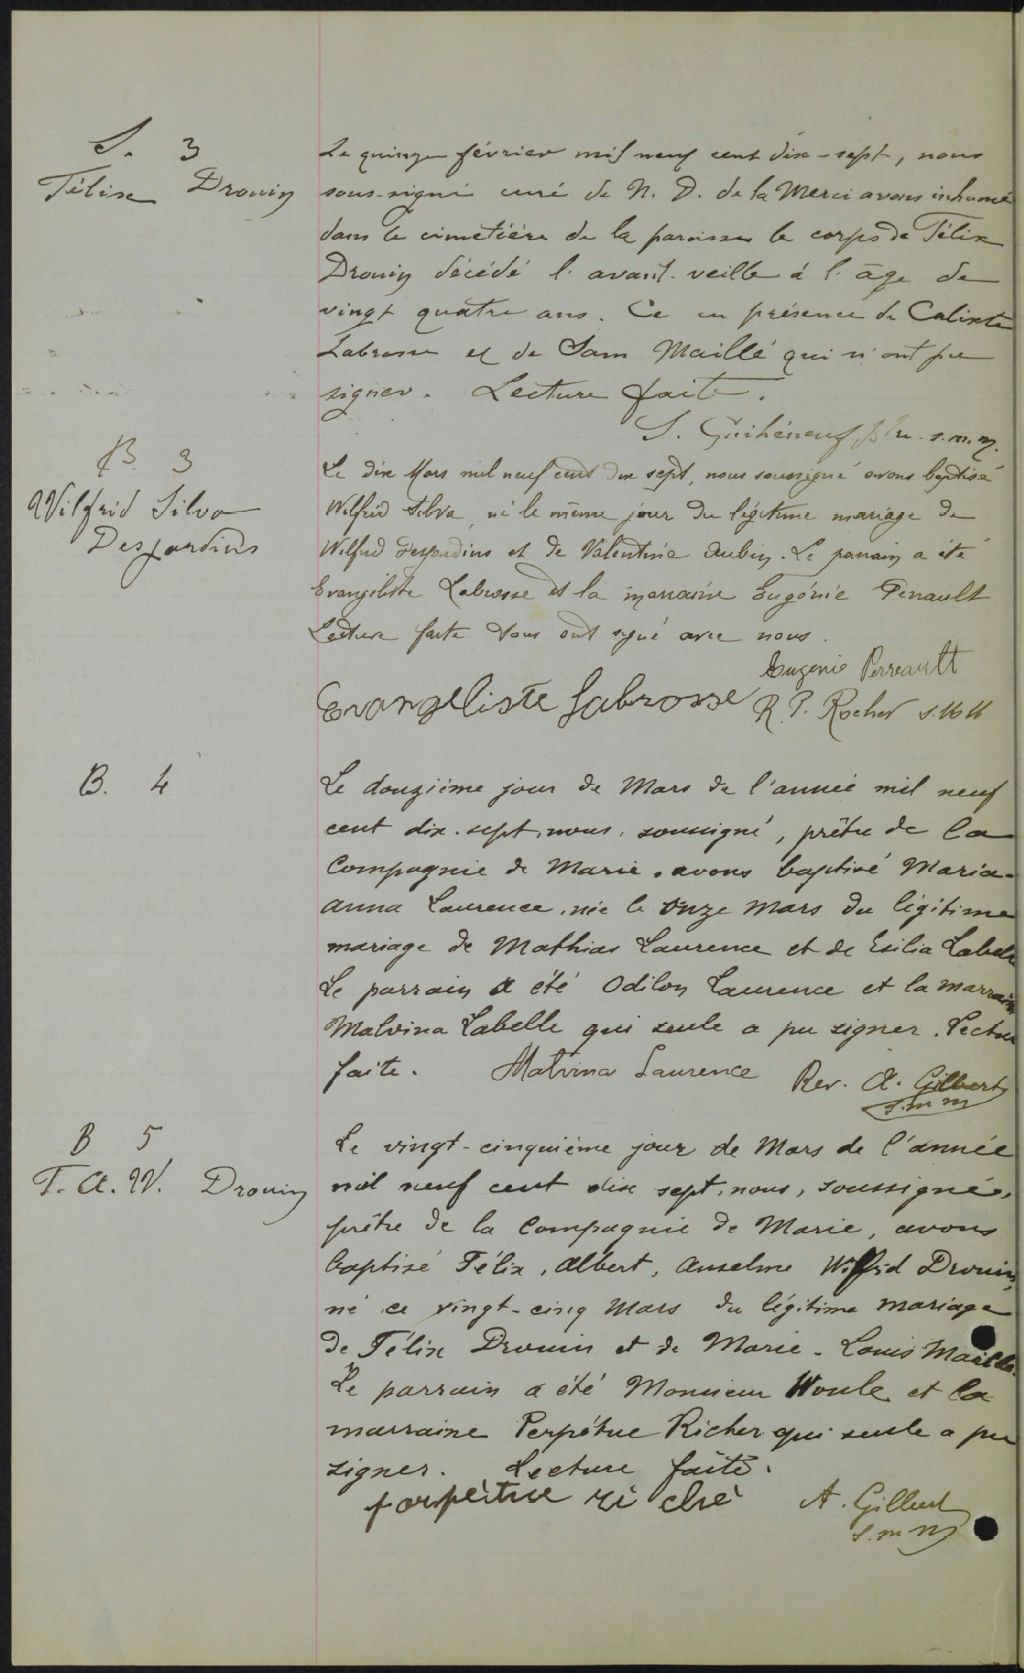 S. 3
Félix Drouin
Le quinze février mil neuf cent dix-sept, nous
sous-signé curé de N. D. de la Merci avons inhumé
dans le cimetière de la paroisse le corps de Félix
Drouin décédé l'avant-veille à l'âge de
vingt quatre ans. Ce en présence de Calixte
Labrosse et de Sam Maillé qui n'ont pu
signer. Lecture faite.
S. Guihéneuf ptre. s.m.m.
B 3
Wilfrid Silva
Desjardins
Le dix Mars mil neuf cent dix sept, nous soussigné avons baptisé
Wilfrid Silva, né le même jour du légitime mariage de
Wilfrid Desjardins et de Valentine Aubin. Le parrain a été
Evangeliste Labrosse et la marraine Eugénie Perrault
Lecture faite tous ont signé avec nous.
Eugenie Perreault
Evangeliste Labrosse R. P. Rocher s.m.m
B. 4
Le douzième jour de Mars de l'année mil neuf
cent dix-sept, nous, soussigné, prêtre de la
Compagnie de Marie, avons baptisé Maria-
Anna Laurence, née le onze Mars du légitime
mariage de Mathias Laurence et de Exilia Labelle
Le parrain a été Odilon Laurence et la marraine
Malvina Labelle qui seule a pu signer. Lecture
faite. Malvina Laurence Rev. A. Gilbert
s.m.m
B 5
F. A. W. Drouin
Le vingt-cinquième jour de Mars de l'année
mil neuf cent dix sept, nous, soussigné,
prêtre de la Compagnie de Marie, avons
baptisé Félix, Albert, Anselme Wilfrid Drouin,
né ce vingt-cinq Mars du légitime mariage
de Félix Drouin et de Marie-Louis Maillé.
Le parrain a été Monsieur Houle et la
marraine Perpétue Richer qui seule a pu
signer. Lecture faite.
parpeitue ri ché A. Gilbert
s.m.m